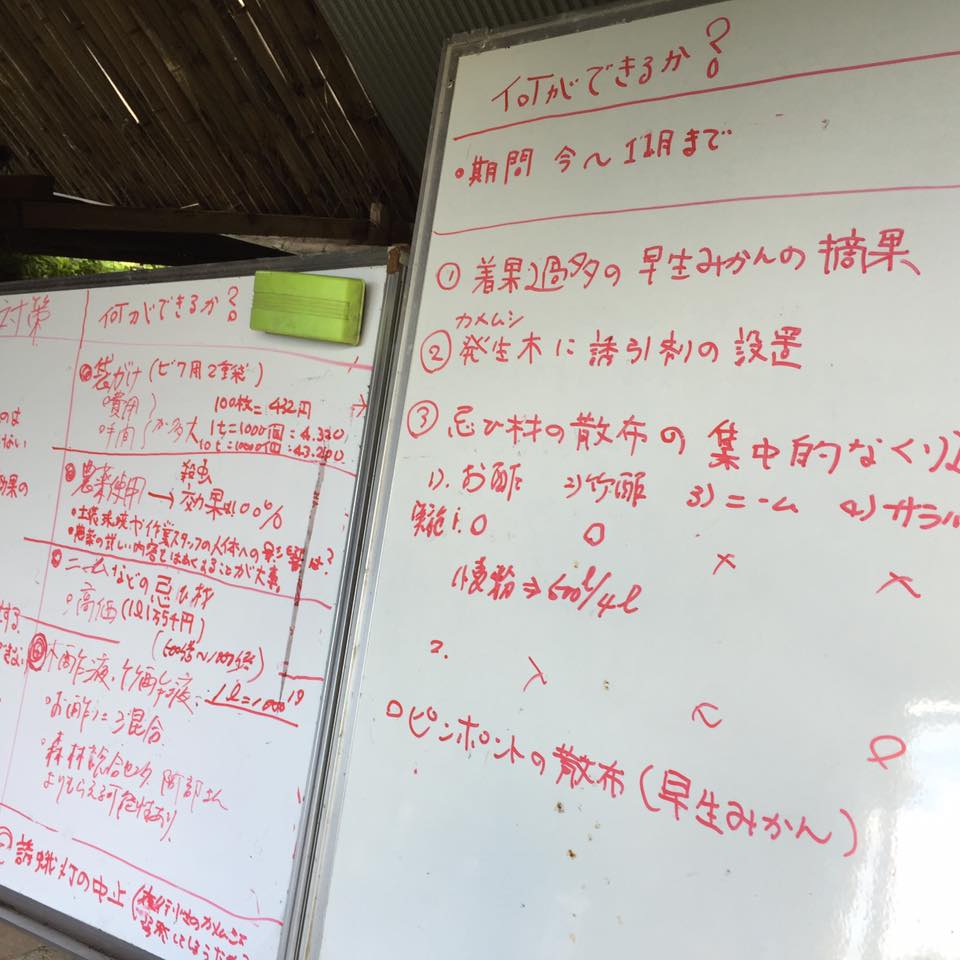 対策
何ができるか?
袋がけ(ビワ用2重袋)
費用
100枚=432円
手間
が多大
1t=1000個=4.320
10t=10000個=43.200
殺虫
農薬使用→効果は100%
・土壌環境や作業スタッフの人体への影響は?
・農薬の詳しい内容をはあくすることが大事
ニームなどの忌ひ材
高価(1l1万54円)
木酢液、竹酢液:
お酢に3混合
森林総合センター 阿部さん
よりもらえる可能性あり
誘蛾灯の中止
何ができるか?
期間 今〜11月まで
① 着果過多の早生みかんの摘果
カメムシ
② 発生木に誘引剤の設置
③ 忌ひ材の散布の集中的なくり
1). お酢 2)竹酢 3)ニーム 4)サラ
実施1.○ ○ × ×
2.
ピンポントの散布(早生みかん)